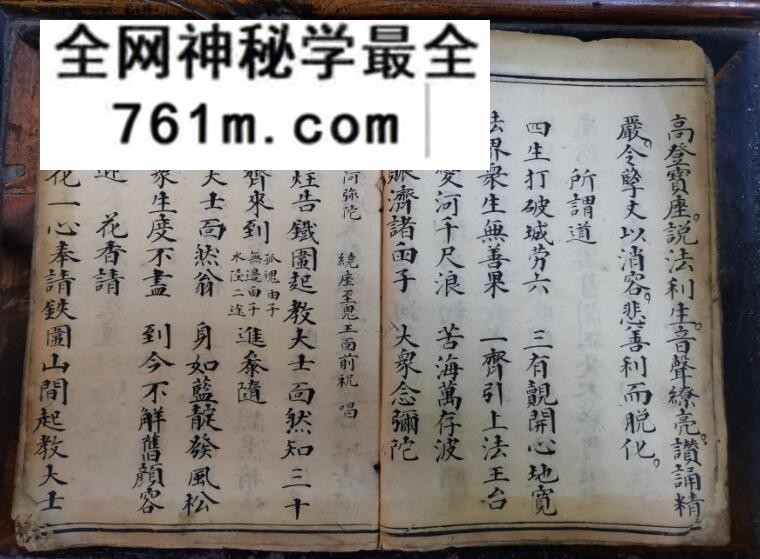 全网神秘学最全
761m.com
高登寶座。說法利生。音聲嘹亮。讚誦精
嚴。令孽丈以消容。悲善利而脫化。
所謂道
四生打破城劳六 三有靚開心地寛
法界衆生無善果 一齊引上法王台
愛河千尺浪 苦海萬存波
賑濟諸孤子 大衆念彌陀
阿弥陀 繞座至鬼王面前祝 唱
告鐵圍起教大士面然知三十
齊來到 孤魂由子 無邊由子 水陸二途 進叅隨
大士面然翁 身如藍靛發風松
衆生度不盡 到今不解舊顔容
花香請
花一心奉請鉄圍山間起教大士